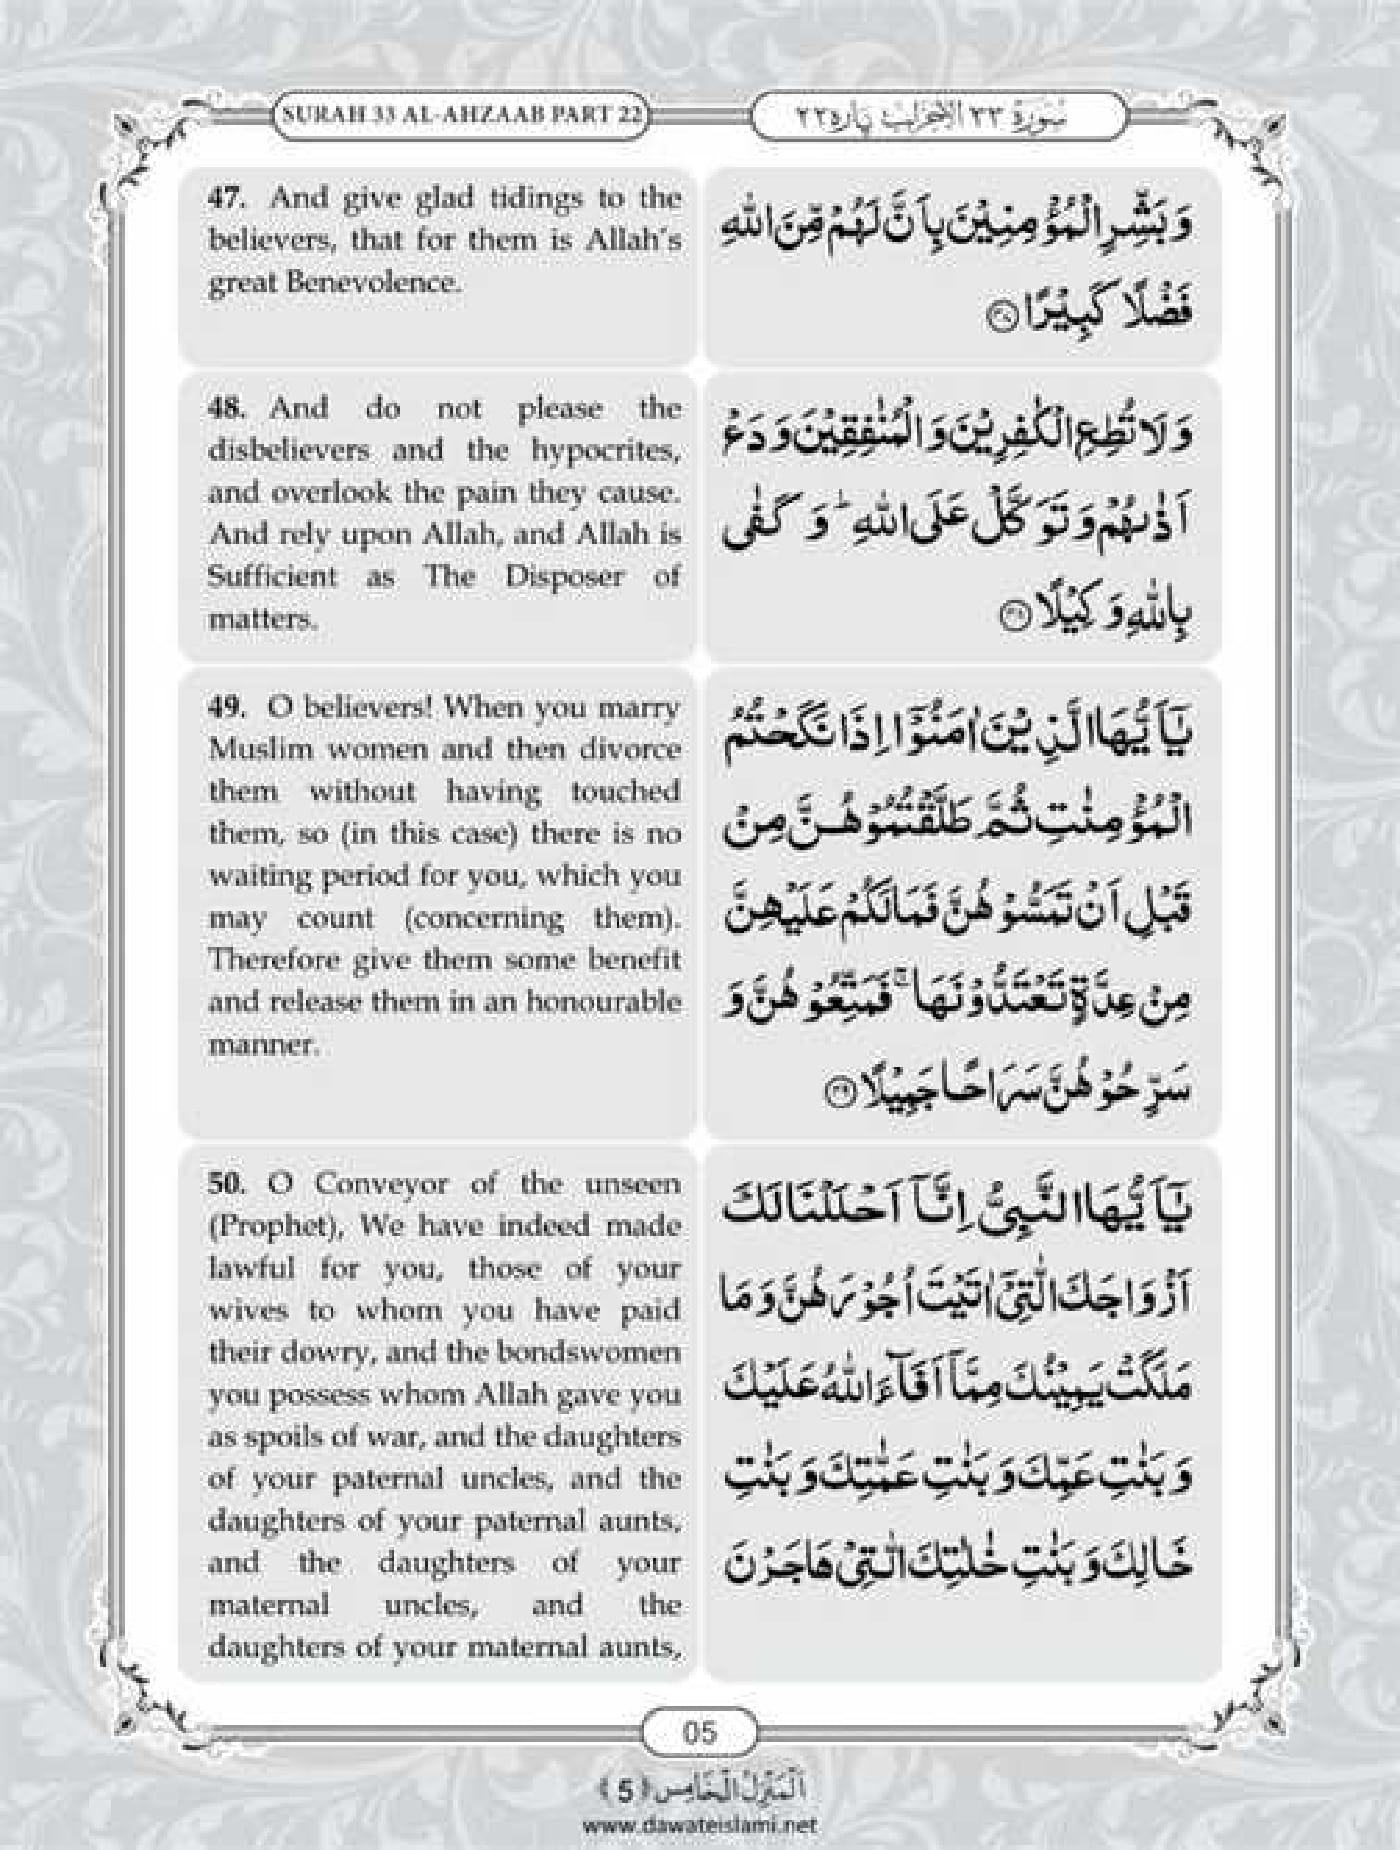 SURAH 33 AL-AHZAAB PART 22
سُوْرَةُ ٣٣ الاحزاب پاره ٢٢
47. And give glad tidings to the
believers, that for them is Allah's
great Benevolence.
وَ بَشِّرِ الْمُؤْمِنِیْنَ بِاَنَّ لَهُمْ مِّنَ اللّٰهِ
فَضْلًا كَبِیْرًا ﴿۴۷﴾
48. And do not please the
disbelievers and the hypocrites,
and overlook the pain they cause.
And rely upon Allah, and Allah is
Sufficient as The Disposer of
matters.
وَ لَا تُطِعِ الْكٰفِرِیْنَ وَ الْمُنٰفِقِیْنَ وَ دَعْ
اَذٰىهُمْ وَ تَوَكَّلْ عَلَى اللّٰهِ ؕ وَ كَفٰى
بِاللّٰهِ وَكِیْلًا ﴿۴۸﴾
49. O believers! When you marry
Muslim women and then divorce
them without having touched
them, so (in this case) there is no
waiting period for you, which you
may count (concerning them).
Therefore give them some benefit
and release them in an honourable
manner.
یٰۤاَیُّهَا الَّذِیْنَ اٰمَنُوْۤا اِذَا نَكَحْتُمُ
الْمُؤْمِنٰتِ ثُمَّ طَلَّقْتُمُوْهُنَّ مِنْ
قَبْلِ اَنْ تَمَسُّوْهُنَّ فَمَا لَكُمْ عَلَیْهِنَّ
مِنْ عِدَّةٍ تَعْتَدُّوْنَهَا ۚ فَمَتِّعُوْهُنَّ وَ
سَرِّحُوْهُنَّ سَرَاحًا جَمِیْلًا ﴿۴۹﴾
50. O Conveyor of the unseen
(Prophet), We have indeed made
lawful for you, those of your
wives to whom you have paid
their dowry, and the bondswomen
you possess whom Allah gave you
as spoils of war, and the daughters
of your paternal uncles, and the
daughters of your paternal aunts,
and the daughters of your
maternal uncles, and the
daughters of your maternal aunts,
یٰۤاَیُّهَا النَّبِیُّ اِنَّاۤ اَحْلَلْنَا لَكَ
اَزْوَاجَكَ الّٰتِیْۤ اٰتَیْتَ اُجُوْرَهُنَّ وَ مَا
مَلَكَتْ یَمِیْنُكَ مِمَّاۤ اَفَآءَ اللّٰهُ عَلَیْكَ
وَ بَنٰتِ عَمِّكَ وَ بَنٰتِ عَمّٰتِكَ وَ بَنٰتِ
خَالِكَ وَ بَنٰتِ خٰلٰتِكَ الّٰتِیْ هَاجَرْنَ
05
اَلْمَنْزِلُ الْخَامِس (5)
www.dawateislami.net